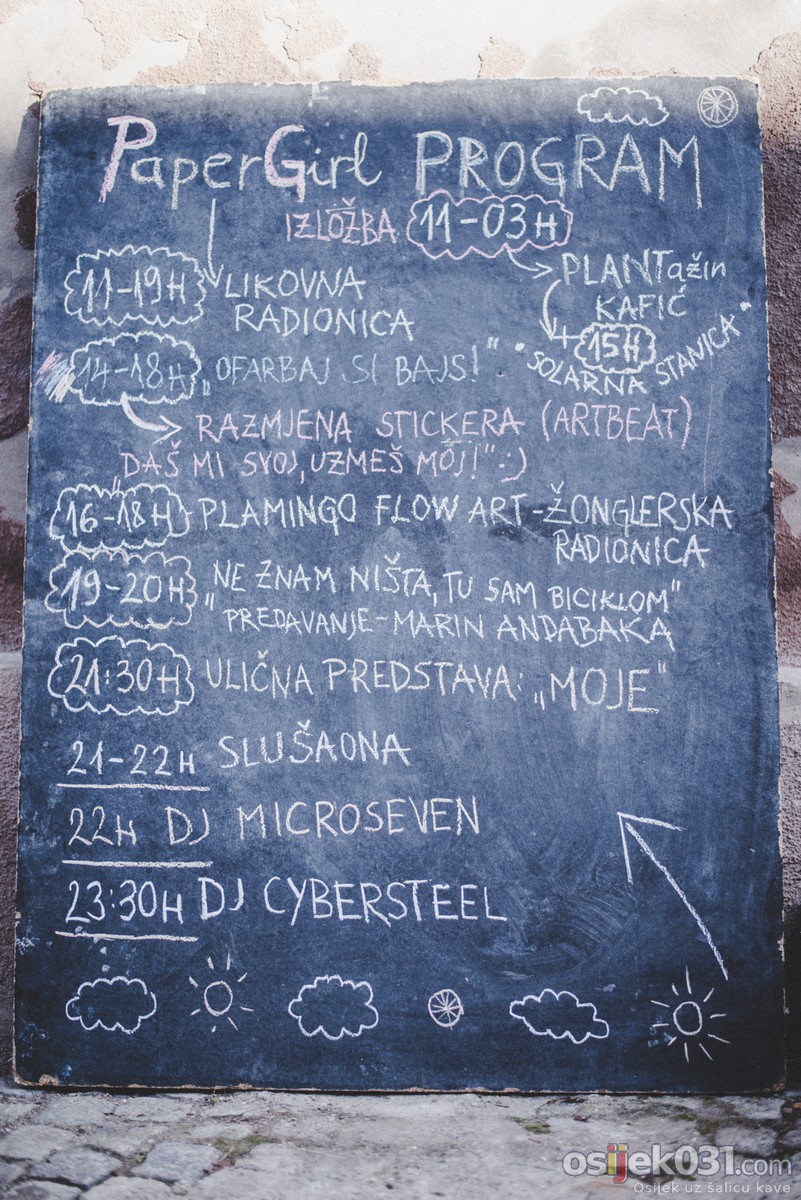 PaperGirl PROGRAM
IZLOŽBA 11-03H
PLANTažin
KAFIĆ
+ 15H
"SOLARNA STANICA"
11-19H LIKOVNA
RADIONICA
14-18H „OFARBAJ SI BAJS!"
RAZMJENA STICKERA (ARTBEAT)
„DAŠ MI SVOJ, UZMEŠ MOJ!" :)
16-18H PLAMINGO FLOW ART - ŽONGLERSKA
RADIONICA
19-20H „NE ZNAM NIŠTA, TU SAM BICIKLOM"
PREDAVANJE - MARIN ANDABAKA
21:30H ULIČNA PREDSTAVA: „MOJE"
21-22H SLUŠAONA
22H DJ MICROSEVEN
23:30H DJ CYBERSTEEL
osijek031.com
Osijek uz šalicu kave